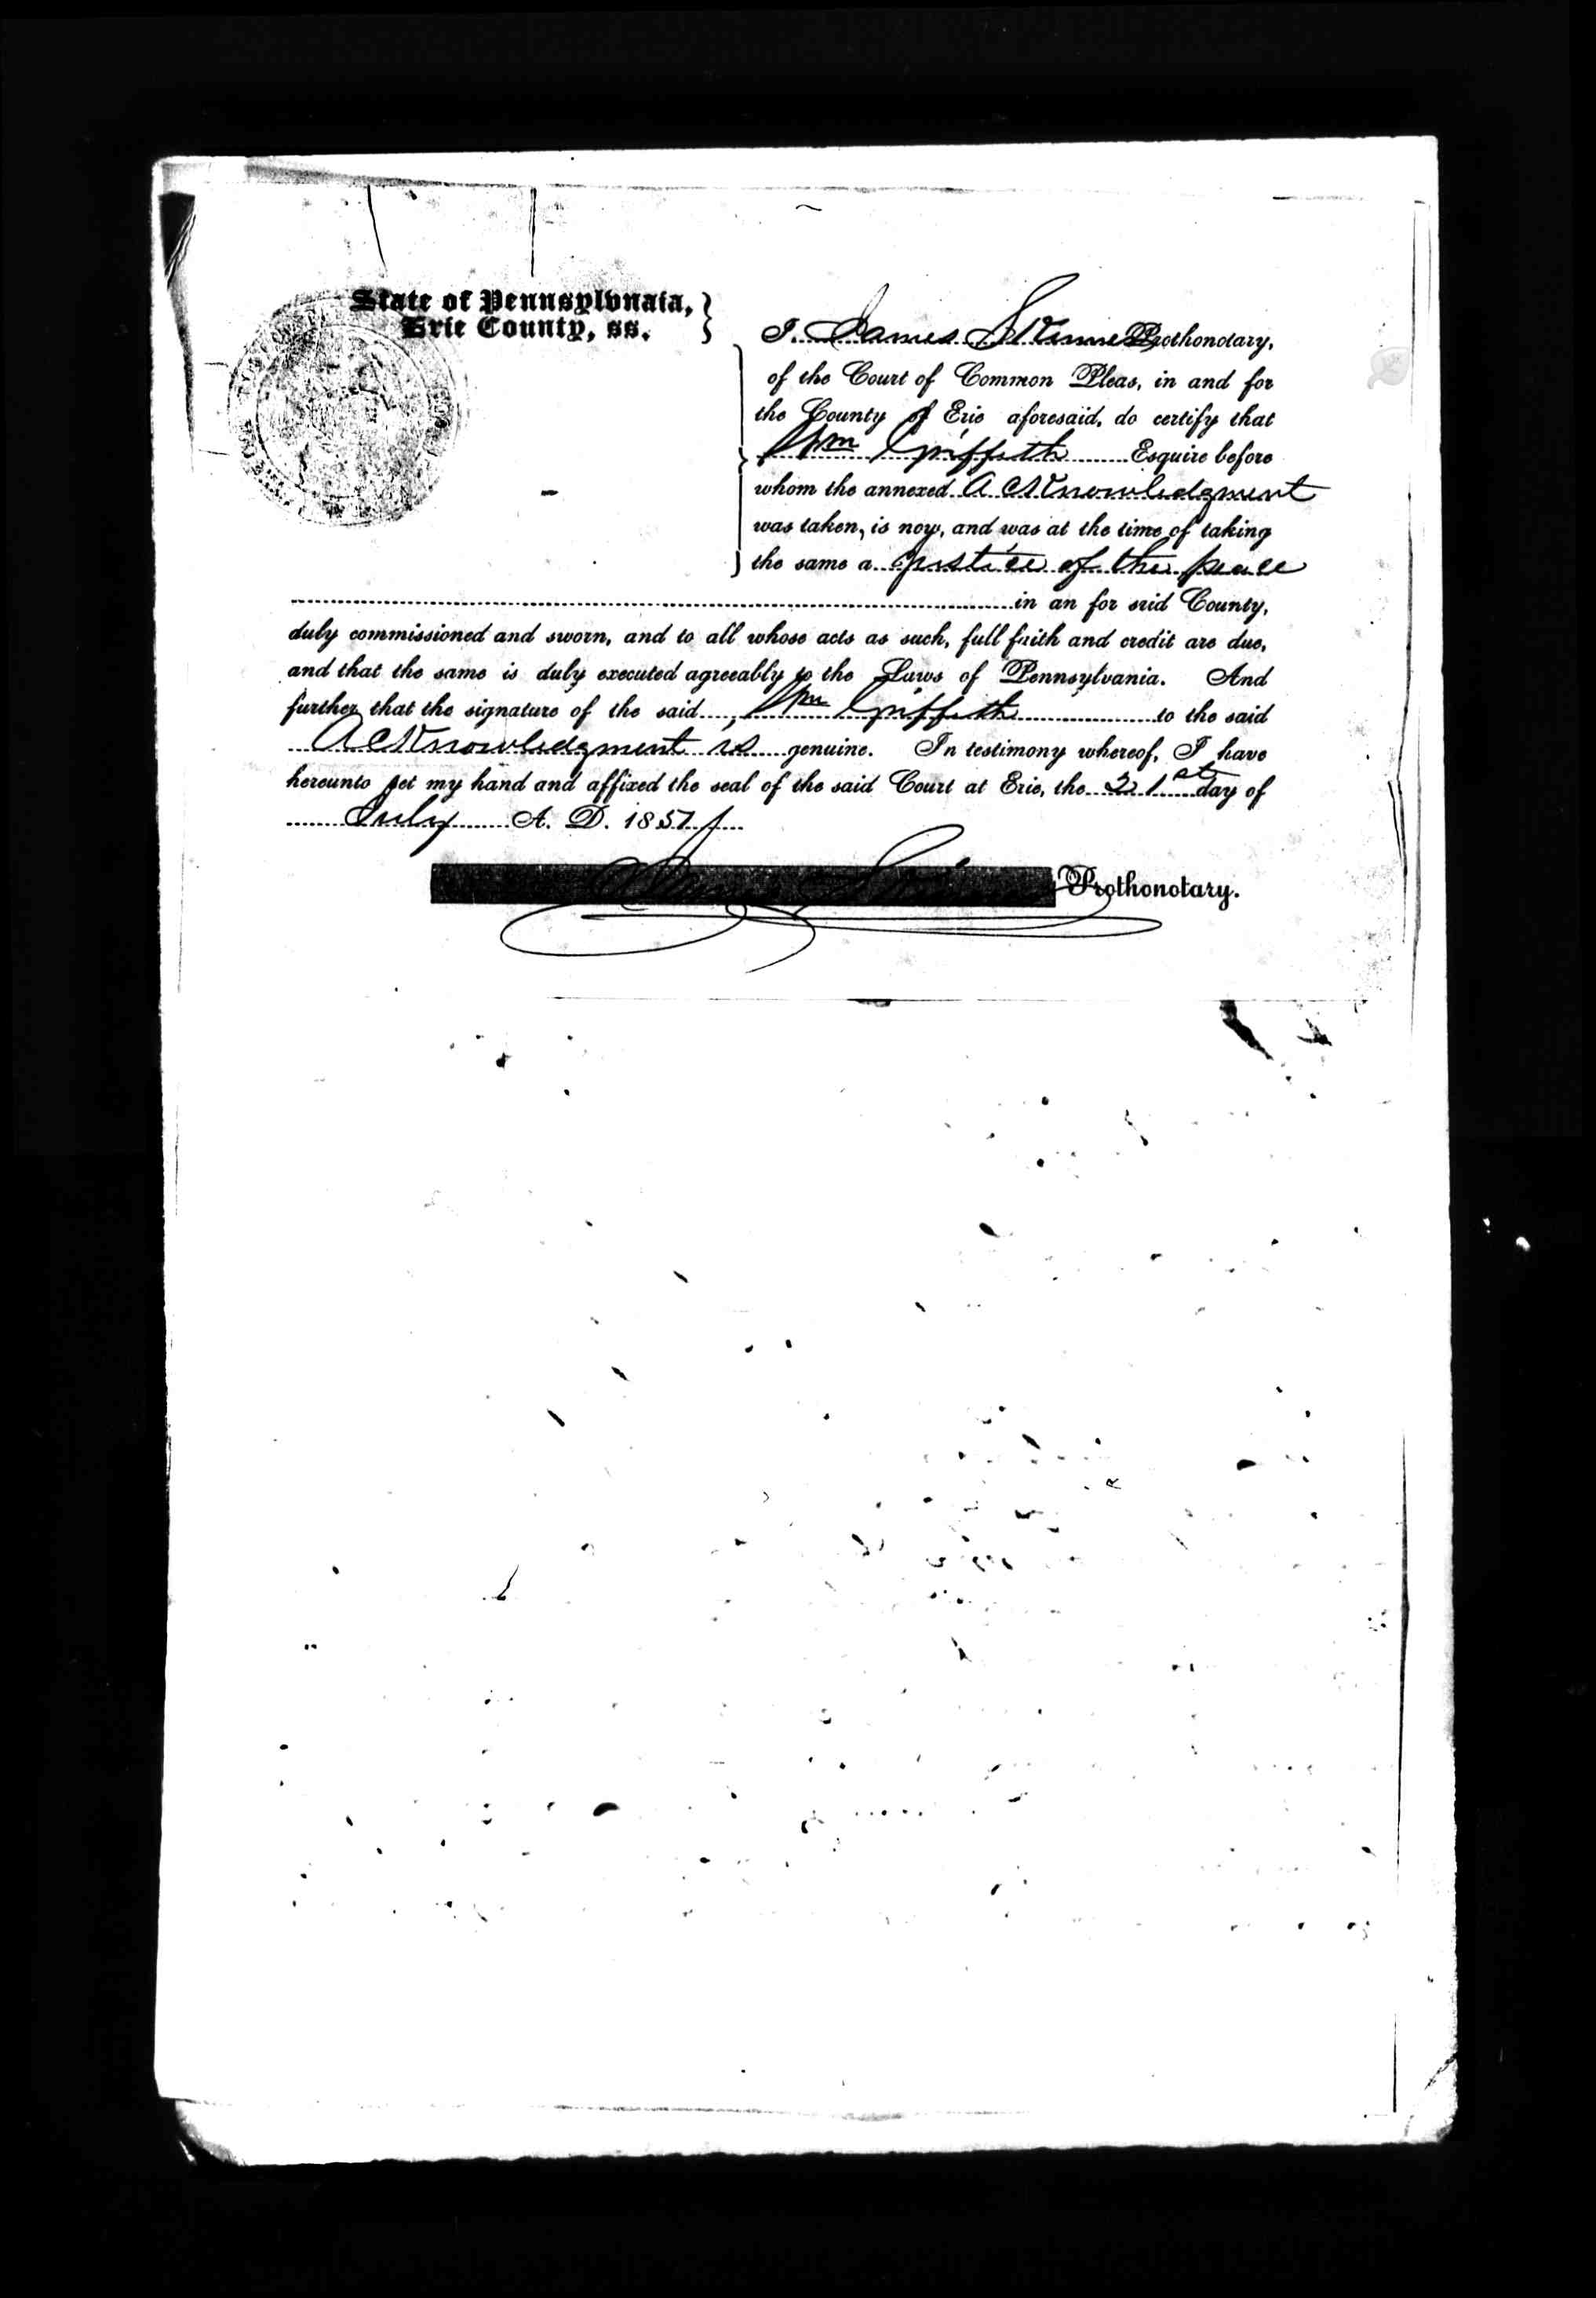 State of Pennsylvnaia,
Erie County, ss.
I. James Skinner Prothonotary,
of the Court of Common Pleas, in and for
the County of Erie aforesaid, do certify that
Wm Griffith Esquire before
whom the annexed Acknowledgment
was taken, is now, and was at the time of taking
the same a justice of the peace
in an for srid County,
duly commissioned and sworn, and to all whose acts as such, full faith and credit are due,
and that the same is duly executed agreeably to the Laws of Pennsylvania. And
further that the signature of the said Wm Griffith to the said
Acknowledgment is genuine. In testimony whereof, I have
hereunto set my hand and affixed the seal of the said Court at Erie, the 21st day of
July A. D. 1851
James Skinner Prothonotary.